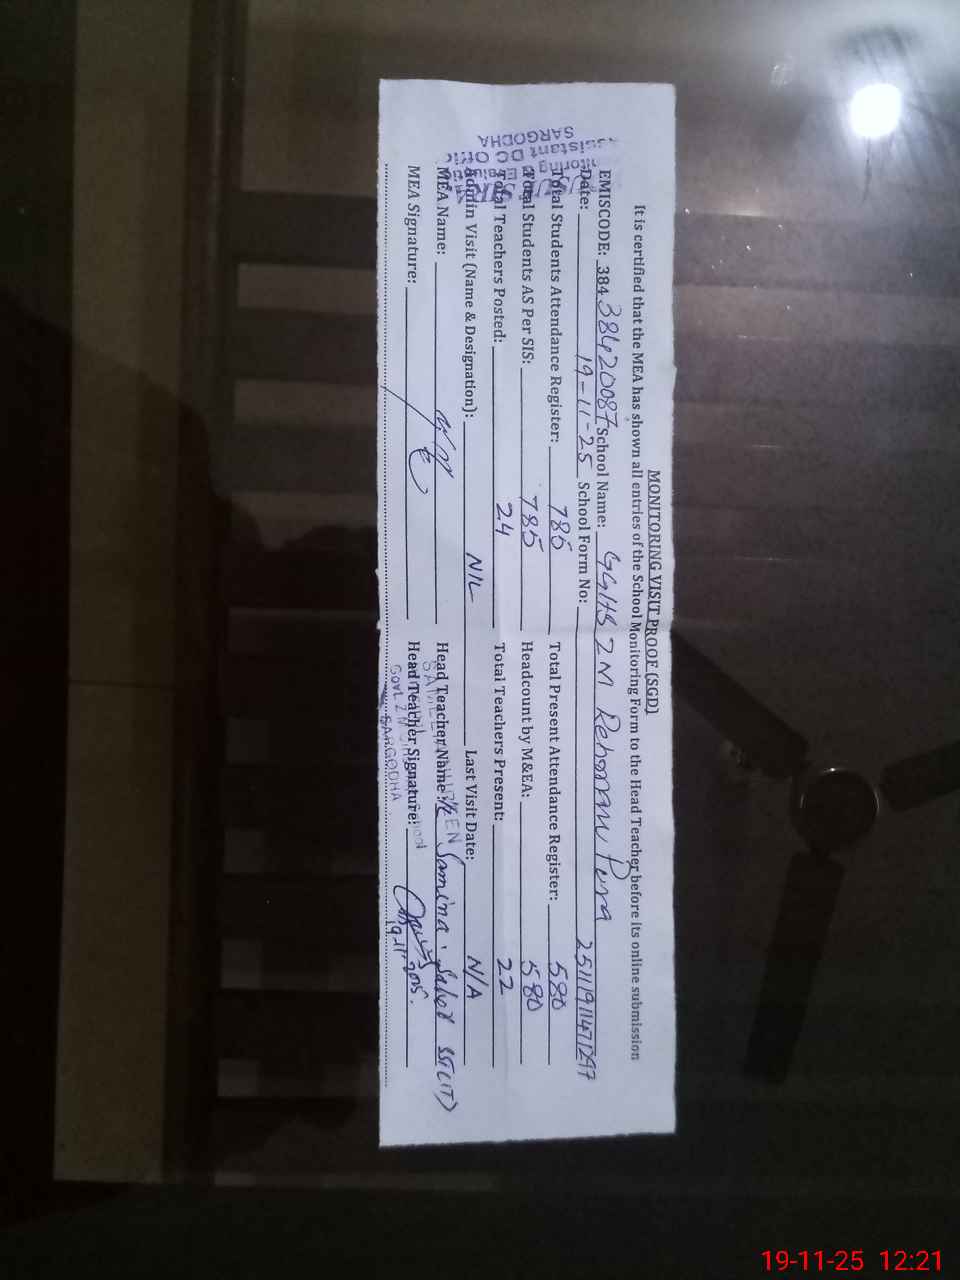 MONITORING VISIT PROOF (SGD)
It is certified that the MEA has shown all entries of the School Monitoring Form to the Head Teacher before its online submission
EMISCODE: 384 38420087 School Name: GGHS ZM Rehman Pura
Date: 19-11-25 School Form No:
Total Students Attendance Register: 785 Total Present Attendance Register: 580
Total Students AS Per SIS: 785 Headcount by M&EA: 580
Total Teachers Posted: 24 Total Teachers Present: 22
Admin Visit (Name & Designation): NIL Last Visit Date: N/A
MEA Name: Head Teacher Name: Samina
MEA Signature: Head Teacher Signature:
Assistant DC Office
SARGODHA
SARGODHA
19-11-25 12:21